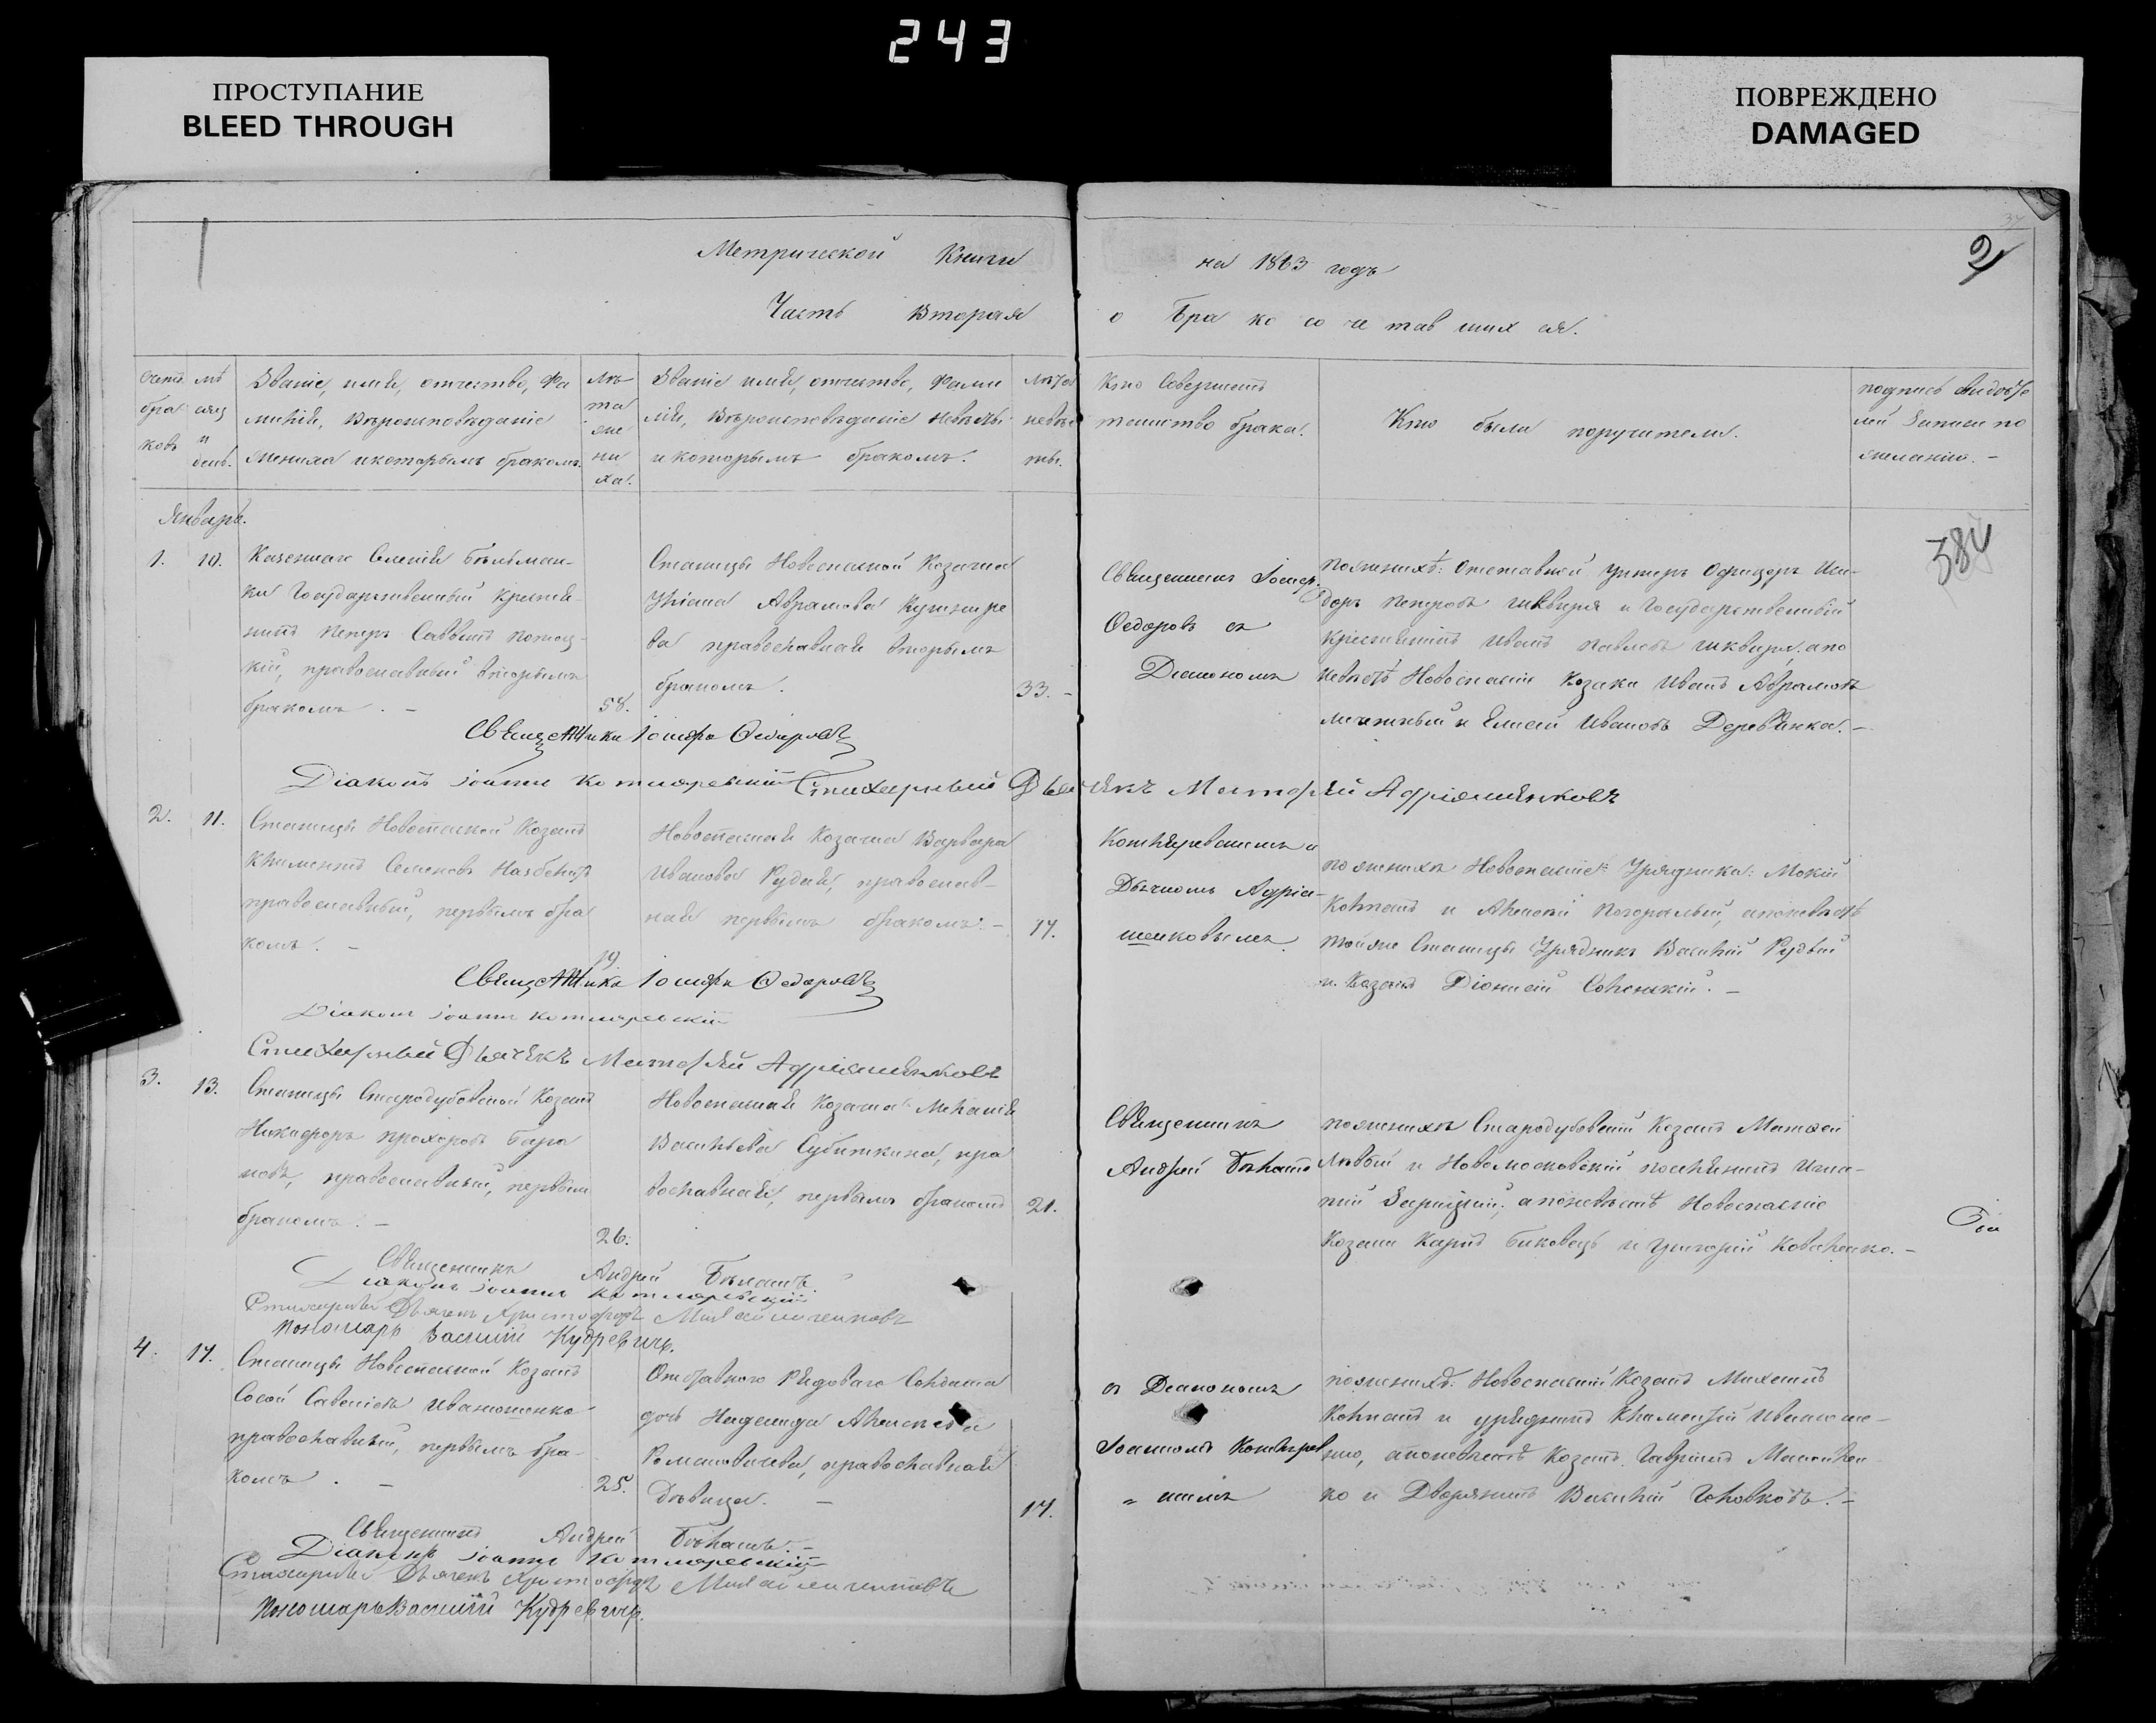 243
ПРОСТУПАНИЕ
BLEED THROUGH
ПОВРЕЖДЕНО
DAMAGED
37
2
Метрической Книги на 1863 годъ
Часть Вторая о Бра ко со че тав ших ся.
Счетъ бра ковъ
мѣ сяц и день.
Званіе, имя, отчество, Фа
милія, Вѣроисповѣданіе
Жениха и которымъ бракомъ.
Лѣ
та
же
ни
ха.
Званіе имя, отчество, Фами
лія, Вѣроисповѣданіе невѣсты
и которымъ бракомъ.
Лѣта
невѣс
ты.
Кто Совершалъ
таинство брака.
Кто были поручители.
подпись свидѣте
лей Записи по
желанію. –
Январь.
1. 10.
Селенія Бѣльман-
ки Государственный Крестья-
нинъ Петръ Саввинъ
кій, православный вторымъ
бракомъ. –
58.
Станицы Новоспасской Козачка
Аврамова
ва православная вторымъ
бракомъ.
33. –
Священникъ Іосиф.
Ѳедоровъ съ
Діакономъ
по женихѣ: Отставной Унтеръ Офицеръ Иси-
доръ Петровъ Шквиря и Государственный
Крестьянинъ Иванъ Павловъ Шквиря, а по
невѣстѣ Новоспаскіе Козаки Иванъ Аврамовъ
и Елисей Ивановъ Деревянка. –
384
Священника Іосифъ Ѳедоровъ
Діаконъ Іоаннъ Котляревскій Стихарный Дьячекъ Матфей Адріяшенковъ
2. 11.
Станицы Новоспаской Козакъ
Климентъ Семеновъ
православный, первымъ бра
комъ. –
19.
Новоспаская Козачка Варвара
Иванова Рудая, православ-
ная первымъ бракомъ. –
17.
Котляревскимъ и
Дьячкомъ Адрія-
шенковымъ.
по женихѣ Новоспаскіе Урядники: Мокій
Колпакъ и Алексѣй Погорѣлый, а по невѣстѣ
той же Станицы Урядникъ Василій Рудый
и Козакъ Діонисій. –
Священника Іосифъ Ѳедоровъ
Діаконъ Іоаннъ Котляревскій
Стихарный Дьячекъ Матфей Адріяшенковъ
3. 13.
Станицы Стародубовской Козакъ
Никифоръ Прохоровъ Бара
новъ, православный, первымъ
бракомъ. –
26.
Новоспаская Козачка Меланія
Васильева Суботкина, пра
вославная, первымъ бракомъ
21.
Священникъ
Андрей Бѣлашъ
по женихѣ Стародубовскій Козакъ Матвей
и Новомосковскій поселянинъ Игна-
тій а по невѣстѣ Новоспаскіе
Козаки Карпъ Биковецъ и Григорій Коваленко. –
Священникъ Андрей Бѣлашъ
Діаконъ Іоаннъ Котляревскій
Стихарный Дьячекъ Христофоръ
Пономарь Василій Кудревичъ.
4. 17.
Станицы Новоспаской Козакъ
Сосой Савельевъ Иванющенко
православный, первымъ бра-
комъ. –
25.
Отставного Рядоваго Солдата
дочь Надежда Алексѣева
Романовичева, православная
Дѣвица. –
17.
съ Діакономъ
Іоанномъ Котлярев
" скимъ
по женихѣ: Новоспаскій Козакъ
Колпакъ и урядникъ Климентій Иванюще-
нко, а по невѣстѣ Козакъ Гавріилъ
ко и Дворянинъ Василій. –
Священникъ Андрей Бѣлашъ. –
Діаконъ Іоаннъ Котляревскій
Стихарный Дьячекъ Христофоръ
Пономарь Василій Кудревичъ.